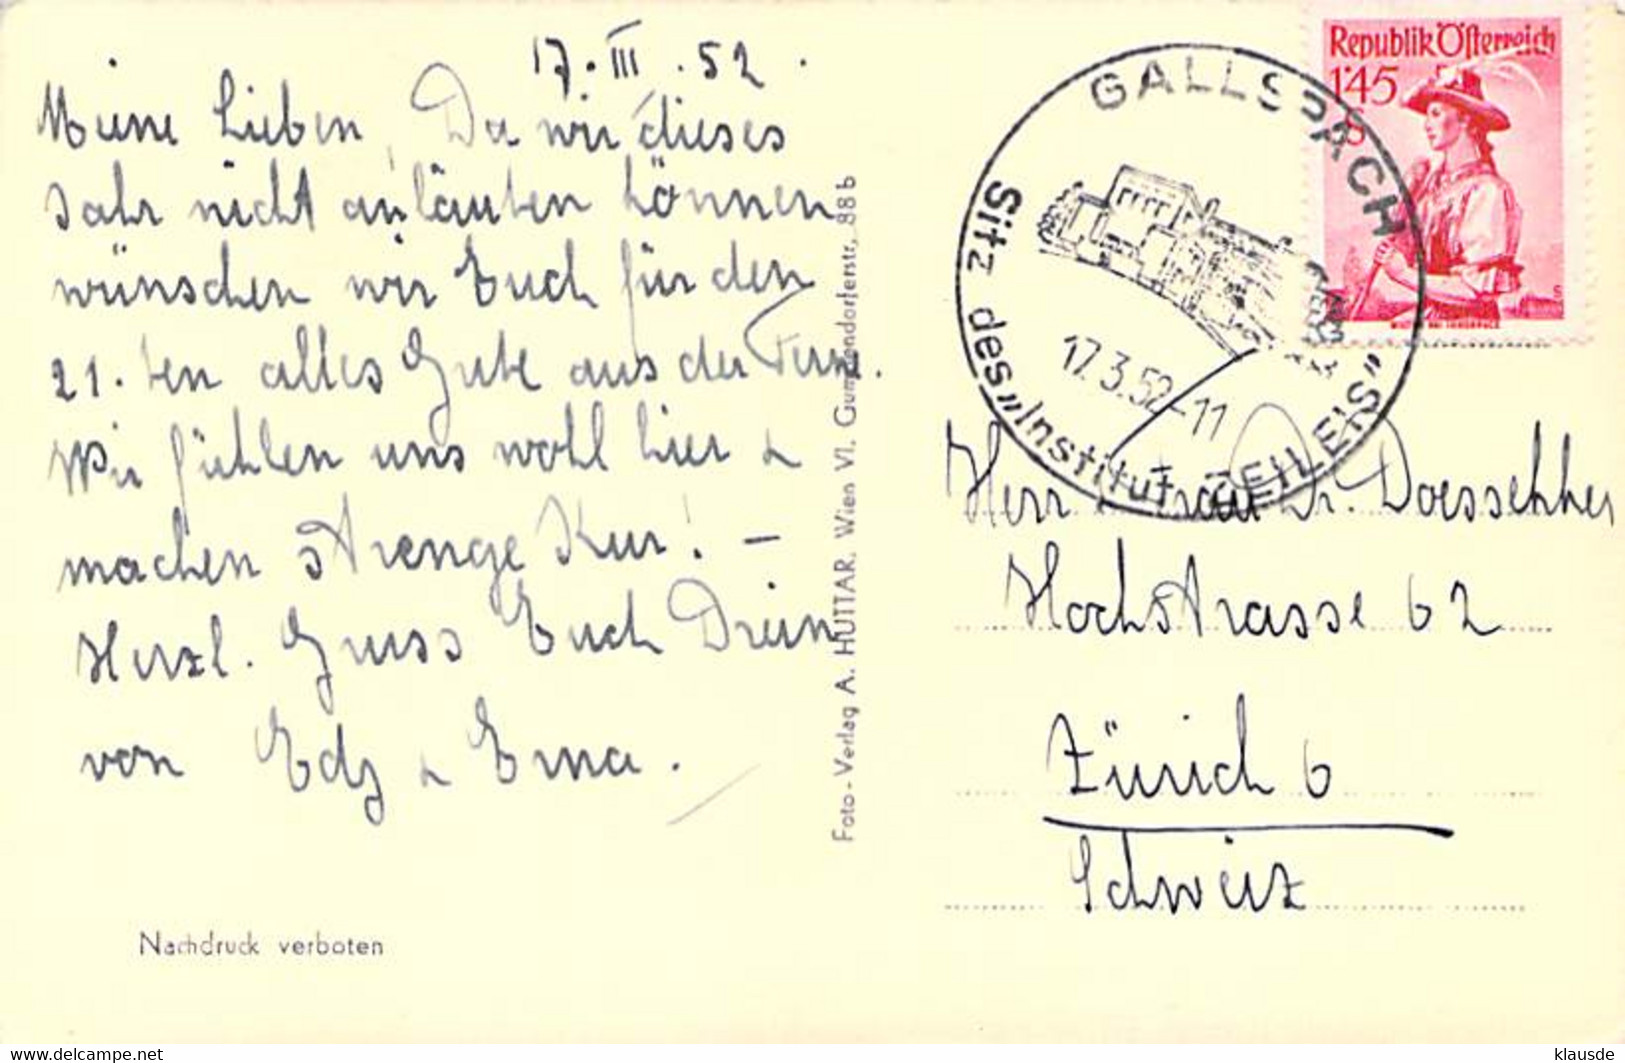 17. III. 52.
Meine Lieben, Da wir dieses
Jahr nicht anläuten können
wünschen wir Euch für den
21. ten alles Gute aus der Ferne.
Wir fühlen uns wohl hier &
machen strenge Kur! –
Herzl. Gruss Euch Drein
von Edy & Erna.
Nachdruck verboten
Foto-Verlag A. HUTTAR, Wien VI. Gumpendorferstr. 88b
GALLSPACH
Sitz des „Institut ZEILEIS"
17.3.52-11
Republik Österreich
1'45
S
Herr & Frau Dr.
Hochstrasse 62
Zürich 6
Schweiz
www.delcampe.net
klausde